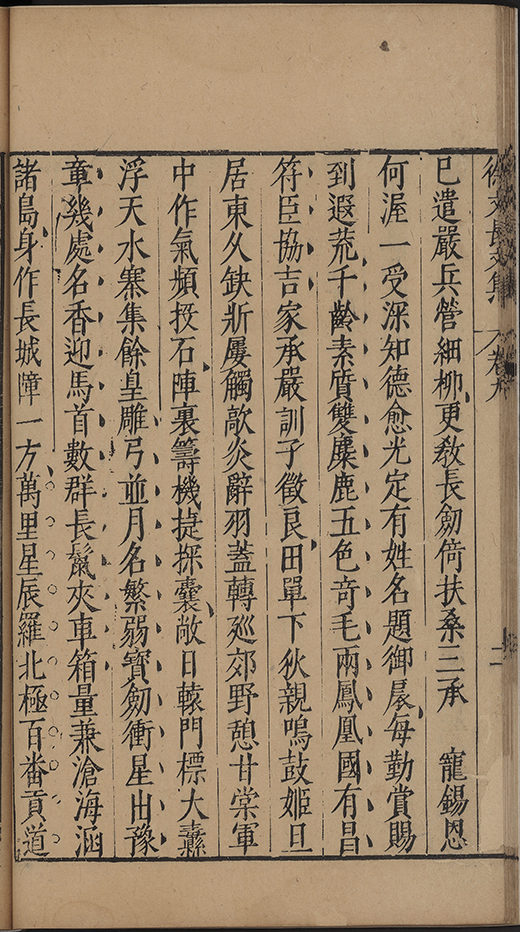 徐文長文集 卷九 二
已遣嚴兵營細柳更教長劒倚扶桑三承 寵錫恩
何渥一受深知德愈光定有姓名題御扆每勤賞賜
到遐荒千齡素質雙麋鹿五色奇毛兩鳳凰國有昌
符臣協吉家承嚴訓子徵良田單下狄親鳴鼓姬旦
居東久缺斨屢觸歊炎辭羽蓋轉廵郊野憩甘棠軍
中作氣頻投石陣裏籌機捷探囊敞日轅門標大纛
浮天水寨集餘皇雕弓並月名繁弱寶劒衝星出豫
章幾處名香迎馬首數群長鬣夾車箱量兼滄海涵
諸島身作長城障一方萬里星辰羅北極百番貢道